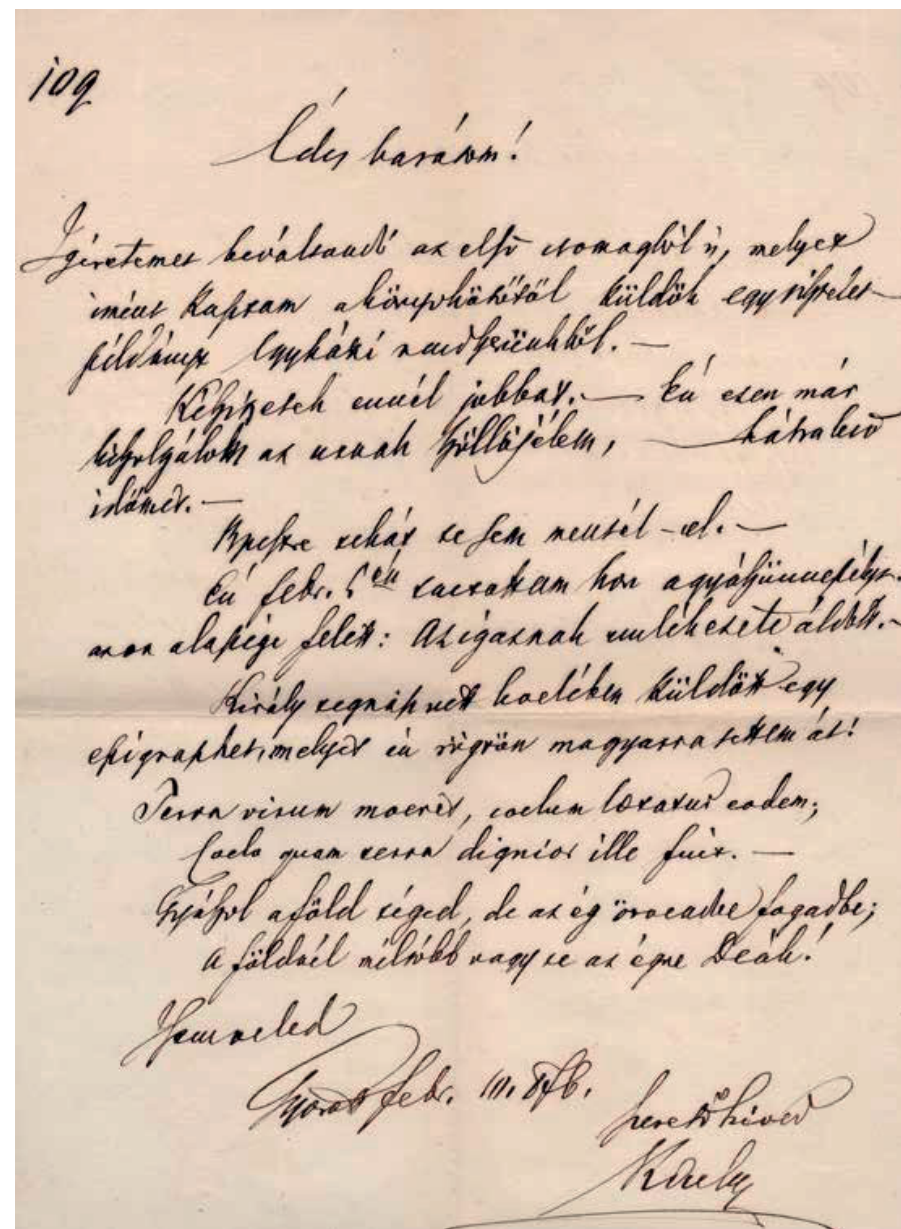 109
Édes barátom!
Igéretemet beváltandó az első csomagból is, melyet
imént kaptam a könyvkötőtől küldök egy tisztelet
példányt Egyházi rendszerünkből. —
Készitsetek ennél jobbat. — Én ezen már
az annak — hátralevő
időmet. —
Pestre tehát te sem mentél-el. —
Én febr. 6án tartottam hon a gyászünnepélyt.
azon alapige felett: Az igaznak emlékezete áldott. —
Király tegnap vett levelében küldött egy
epigraphot, melyet én rögtön magyarra tettem át!
Terra virum moeret, coelum laetatur eodem;
Coelo quam terra dignior ille fuit. —
Gyászol a föld téged, de az ég örvendve fogad be;
A földnél méltóbb vagy te az égre Deák!
Isten veled
Győrött febr. 10. 876.
szerető hived
Karly